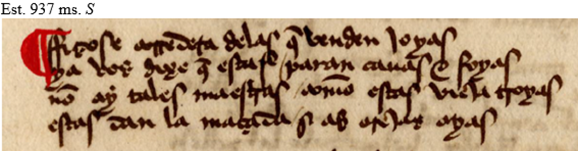 Est. 937 ms. S
¶ ffizose corredera delas q̃ venden joyas
ya vos dixe q̃ estas paran cauas & foyas
nõ ay tales maestras comõ estas viejas troyas
estas dan la maçada sy as orejas oyas